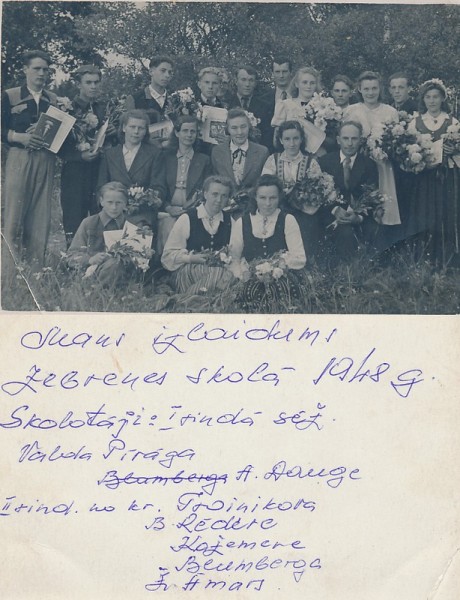 Mans izlaidums
Zebrenes skolā 1948 g.
Skolotāji: I rindā sēž.
Valda Pīrāga
Blumberga A. Dauge
II rind. no kr. Troinikova
B. Rēdere
Kažemere
Blumberga
Žr. Amars.